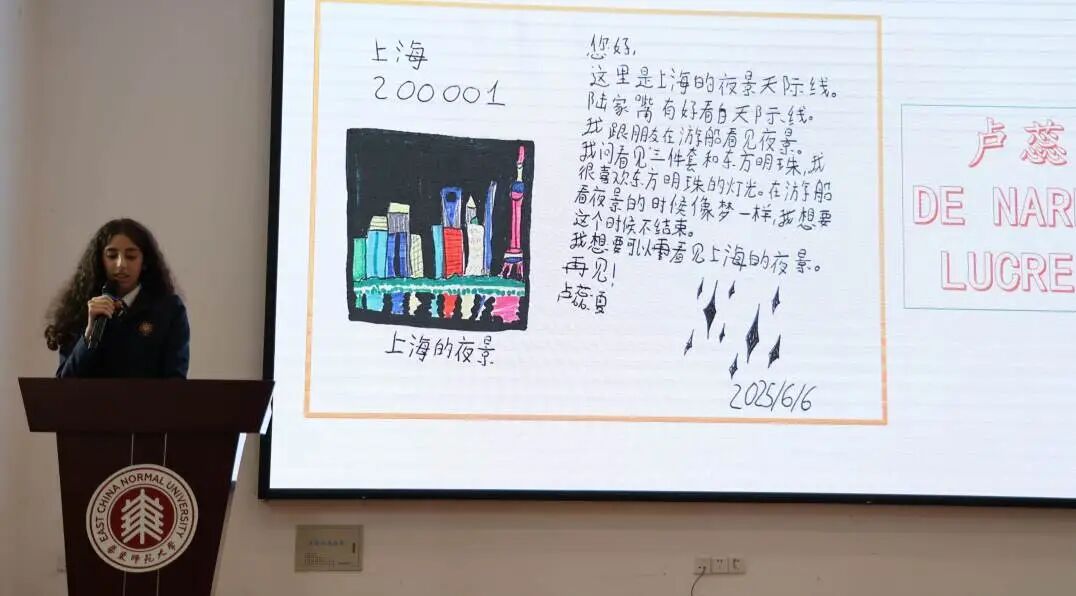 上海
200001
上海的夜景
您好,
这里是上海的夜景天际线。
陆家嘴有好看白天际线。
我跟朋友在游船看见夜景。
我问看见三件套和东方明珠,我
很喜欢东方明珠的灯光。在游船
看夜景的时候像梦一样,我想要
这个时候不结束。
我想要可以再看见上海的夜景。
再见!
卢蕊夏
2025/6/6
卢蕊
DE NAR
LUCRE
EAST CHINA NORMAL UNIVERSITY
華東师范大学